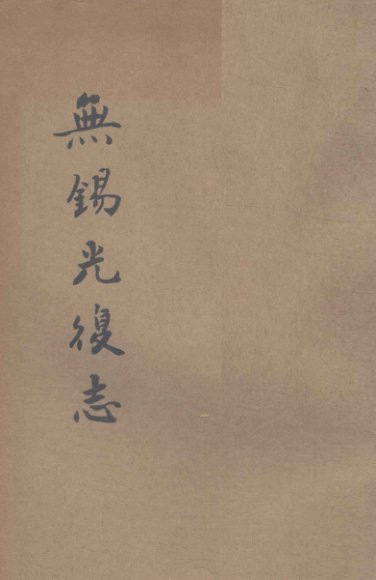 無錫光復志